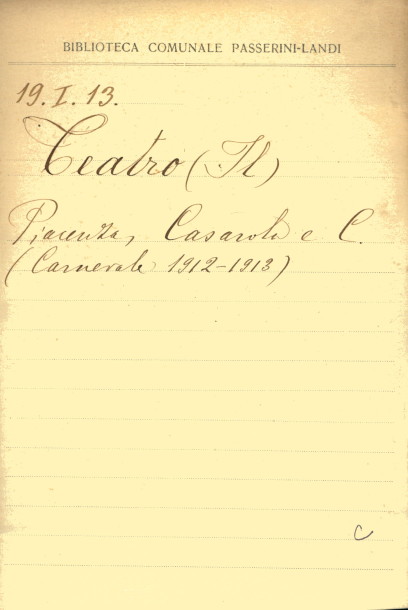 BIBLIOTECA COMUNALE PASSERINI-LANDI
19. I. 13.
Teatro (Il)
Piacenza, Casarola e C.
(Carnevale 1912-1913)
C